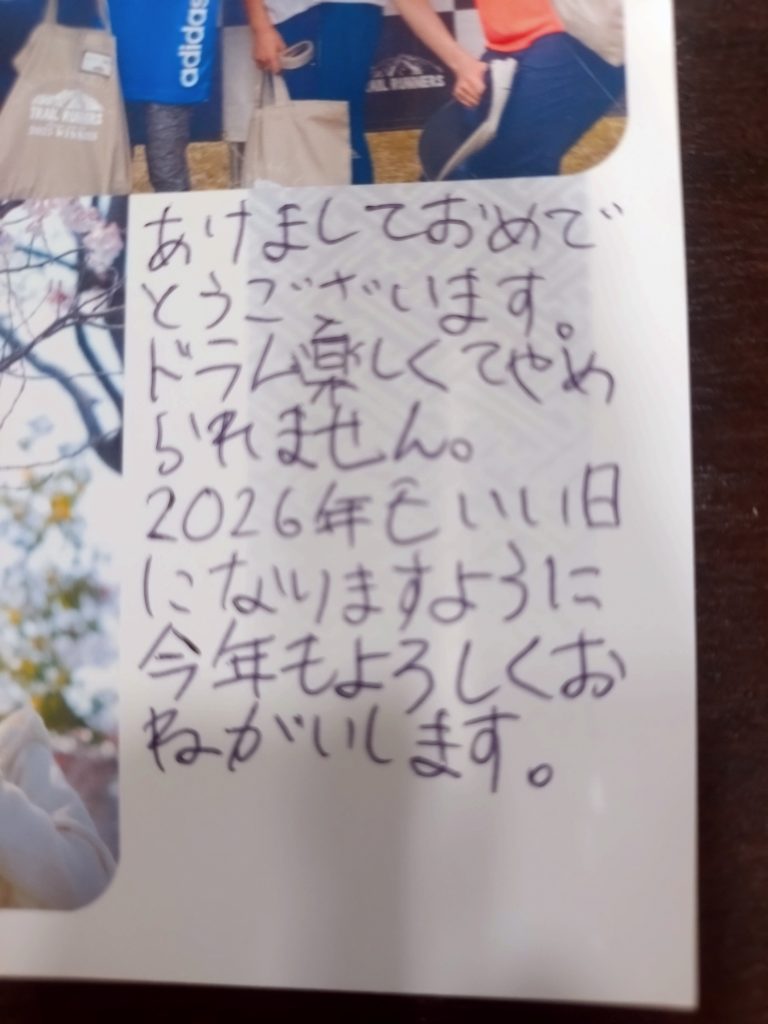 adidas
TRAIL RUNNERS
TRAIL RUNNERS
あけましておめで
とうございます。
ドラム楽しくてやめ
られません。
2026年もいい日
になりますように
今年もよろしくお
ねがいします。